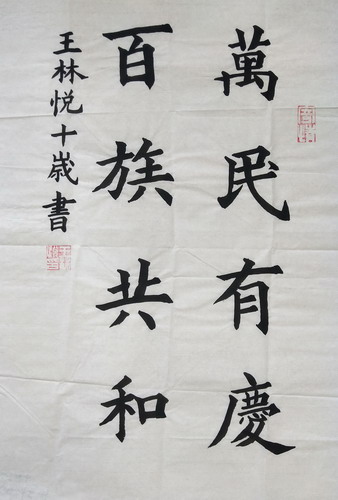 萬民有慶
百族共和
王林悦十歲書